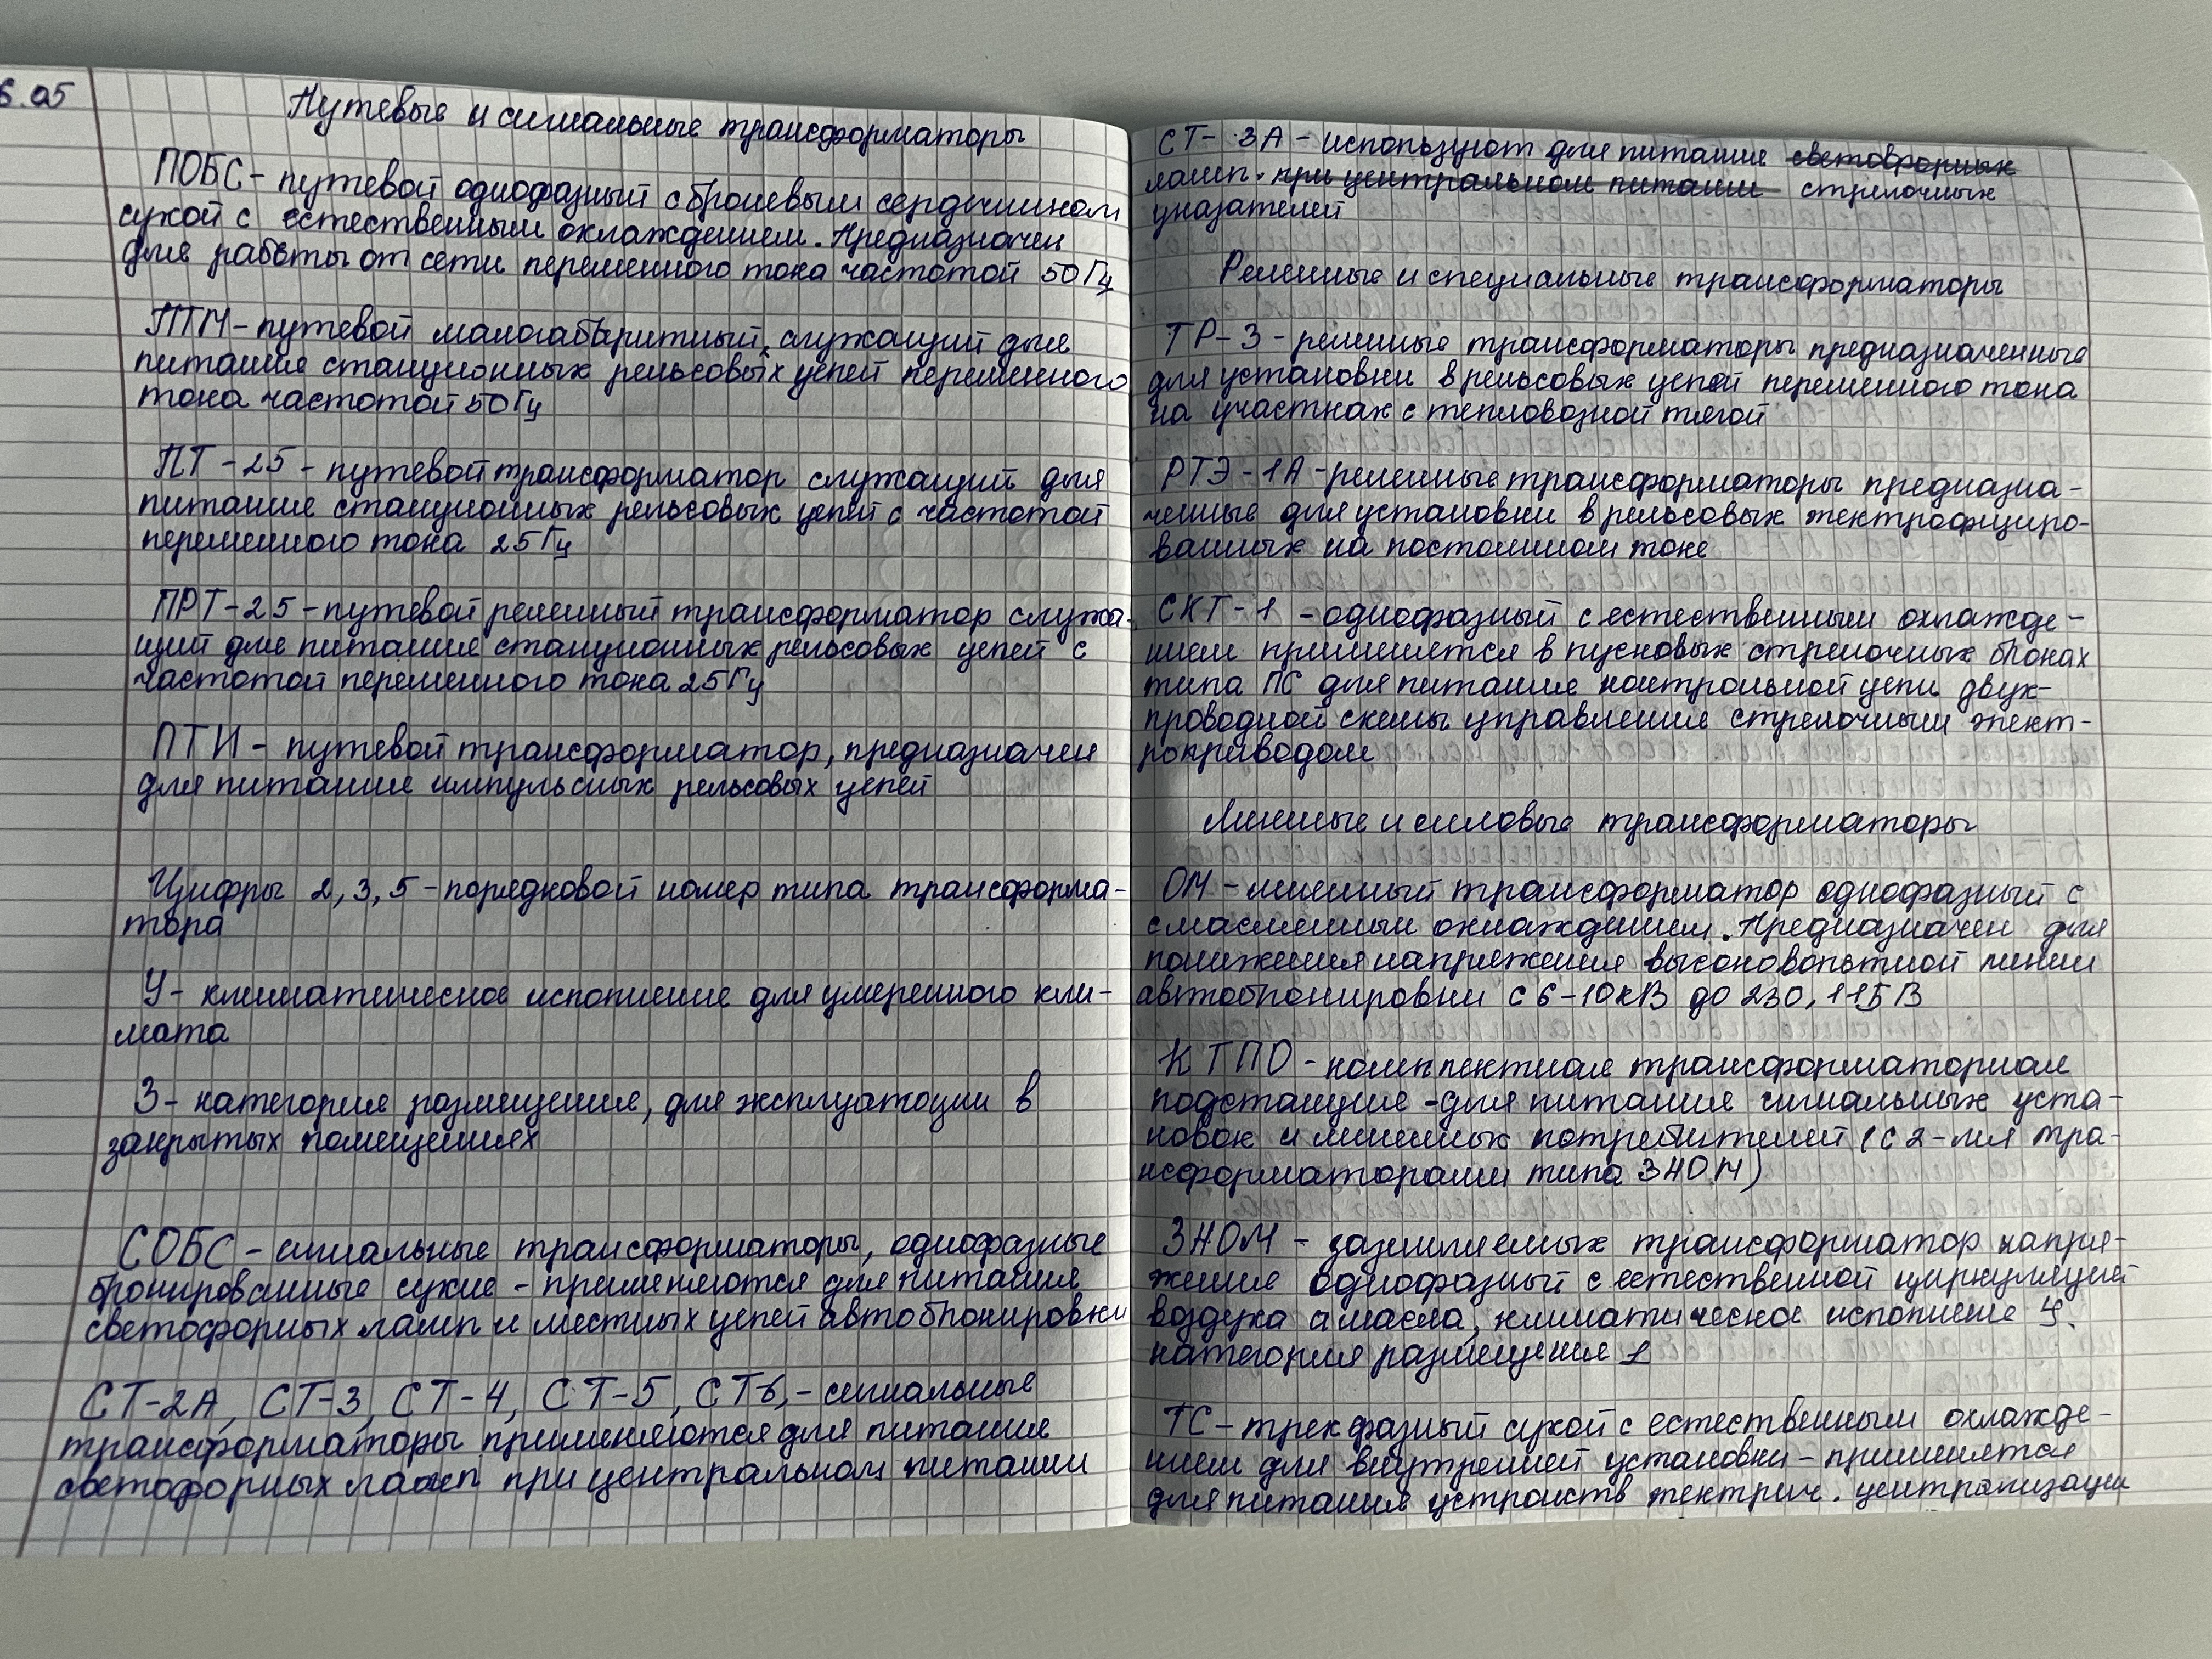 6.05
Путевые и сигнальные трансформаторы
ПОБС - путевой однофазный с броневым сердечником
сухой с естественным охлаждением. Предназначен
для работы от сети переменного тока частотой 50 Гц
ПТМ - путевой малогабаритный, служащий для
питания станционных рельсовых цепей переменного
тока частотой 50 Гц
ПТ-25 - путевой трансформатор служащий для
питания станционных рельсовых цепей с частотой
переменного тока 25 Гц
ПРТ-25 - путевой релейный трансформатор служа-
щий для питания станционных рельсовых цепей с
частотой переменного тока 25 Гц
ПТИ - путевой трансформатор, предназначен
для питания импульсных рельсовых цепей
Цифры 2, 3, 5 - порядковой номер типа трансформа-
тора
У - климатическое исполнение для умеренного кли-
мата
3 - категория размещения, для эксплуатации в
закрытых помещениях
СОБС - сигнальные трансформаторы, однофазные
бронированные сухие - применяются для питания
светофорных ламп и местных цепей автоблокировки
СТ-2А, СТ-3, СТ-4, СТ-5, СТ6, - сигнальные
трансформаторы применяются для питания
светофорных ламп при центральном питании
СТ-3А - используют для питания светофорных
ламп. при центральном питании стрелочных
указателей
Релейные и специальные трансформаторы
ТР-3 - релейные трансформаторы предназначенные
для установки в рельсовых цепей переменного тока
на участках с тепловозной тягой
РТЭ-1А - релейные трансформаторы предназна-
ченные для установки в рельсовых электрофициро-
ванных на постоянном токе
СКТ-1 - однофазный с естественным охлажде-
нием применяется в пусковых стрелочных блоках
типа ПС для питания контрольной цепи двух-
проводной схемы управления стрелочным элект-
роприводом
Линейные и силовые трансформаторы
ОМ - линейный трансформатор однофазный с
смасленным охлаждением. Предназначен для
понижения напряжения высоковольтной линии
автоблокировки с 6-10кВ до 230, 115 В
КТПО - комплектная трансформаторная
подстанция - для питания сигнальных уста-
новок и линейных потребителей (с 2-мя тра-
нсформаторами типа ЗНОМ)
ЗНОМ - заземляемых трансформатор напря-
жения однофазный с естественной циркуляцией
воздуха и масла, климатическое исполнение У.
категория размещения 1
ТС - трехфазный сухой с естественным охлажде-
нием для внутренней установки - применяется
для питания устройств электрич. централизации